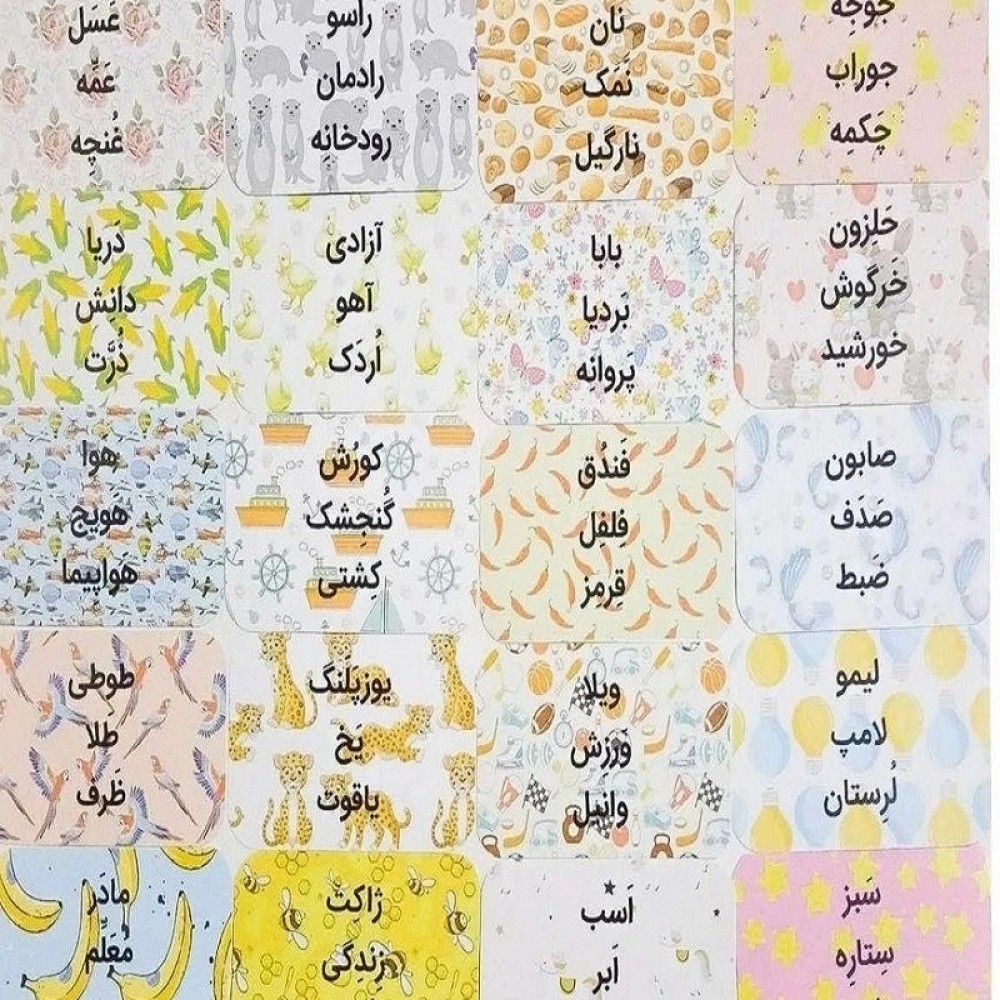 جوجِه
جوراب
چَکمِه
نان
نَمَک
نارگیل
راسو
رادمان
رودخانِه
عَسَل
عَمِّه
غُنچِه
حَلِزون
خَرگوش
خورشید
بابا
بَردیا
پَروانه
آزادی
آهو
اُردَک
دَریا
دانِش
ذُرَّت
صابون
صَدَف
ضَبط
فَندُق
فِلفِل
قِرمِز
کورُش
گُنجِشک
کِشتی
هَوا
هَویج
هَواپیما
لیمو
لامپ
لُرِستان
ویلا
وَرزِش
وانیل
یوزپَلَنگ
یَخ
یاقوت
طوطی
طَلا
ظَرف
سَبز
سِتارِه
اَسب
اَبر
ژاکَت
زِندِگی
مادَر
مُعَلِّم